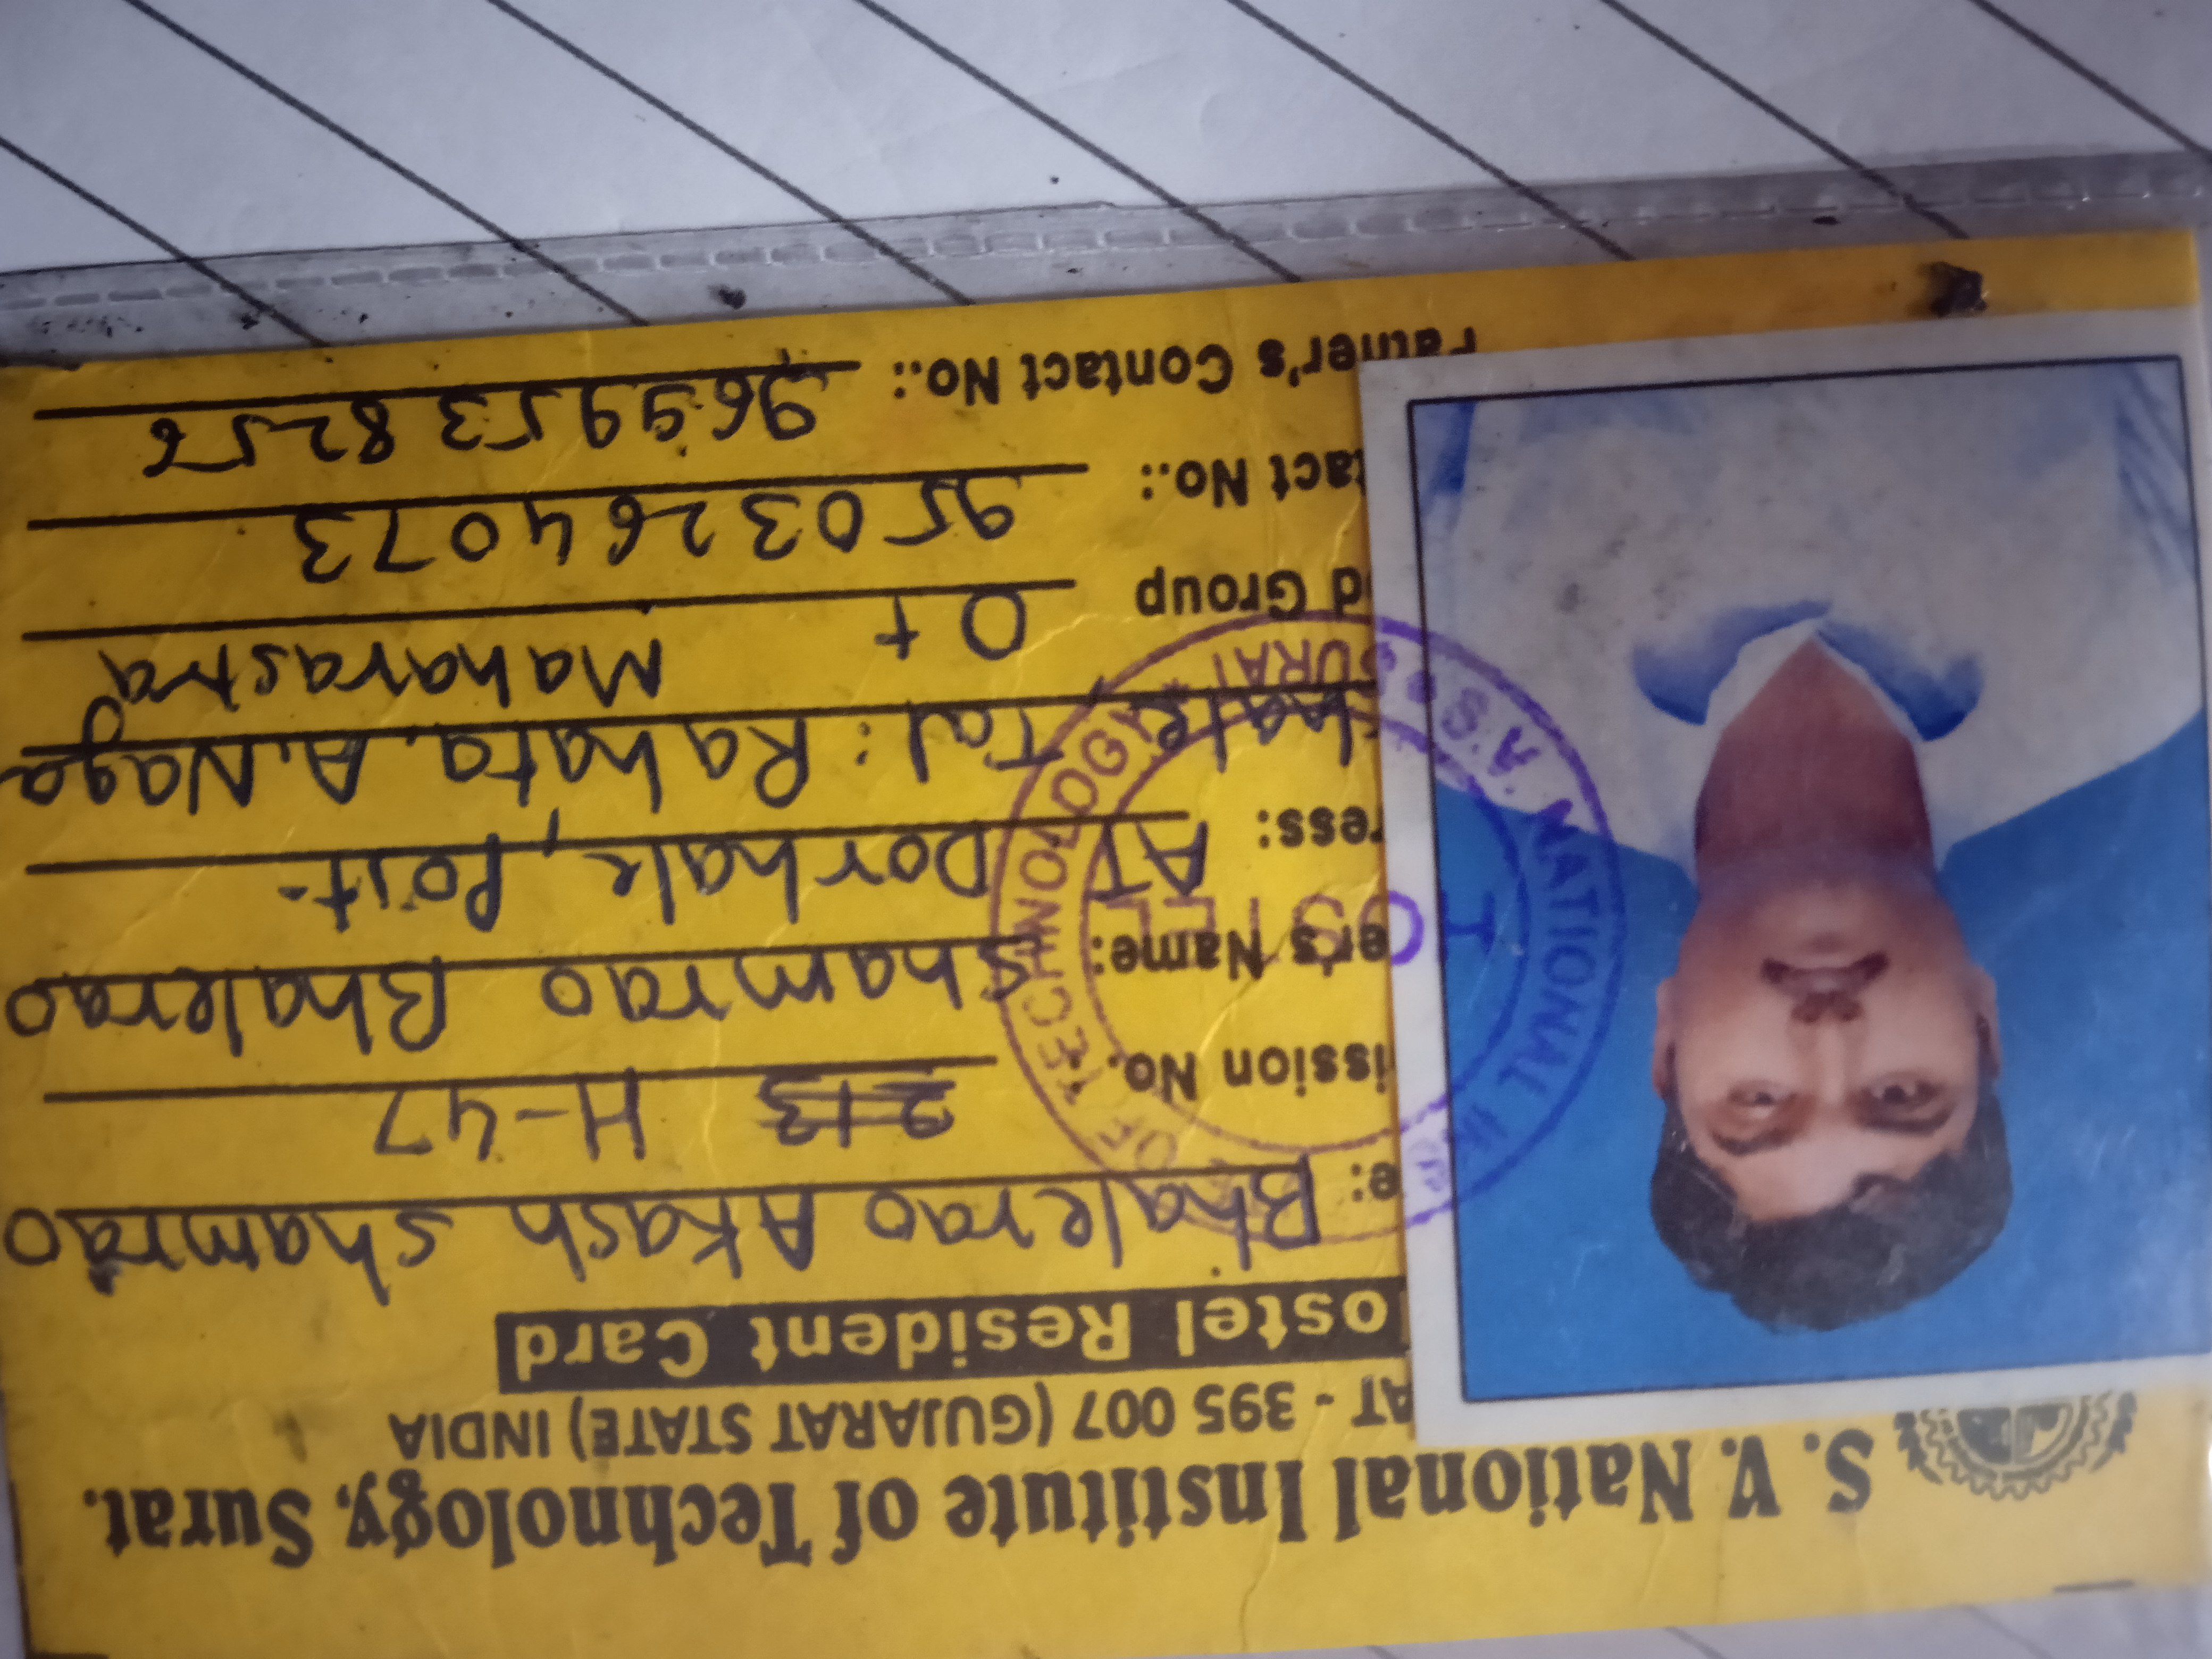 S. V. National Institute of Technology, Surat.
AT - 395 007 (GUJARAT STATE) INDIA
ostel Resident Card
e: Bhalerao Akash Shamrao
ission No. : 213 H-47
er's Name: Shamrao Bhalerao
ress: AT Dorhale, Post-
hale, Tal: Rahata, A. Naga
Maharastra
d Group O+
tact No.: 9503264073
Father's Contact No.: 9699538256
S.V. NATIONAL OF TECHNOLOGY * SURAT